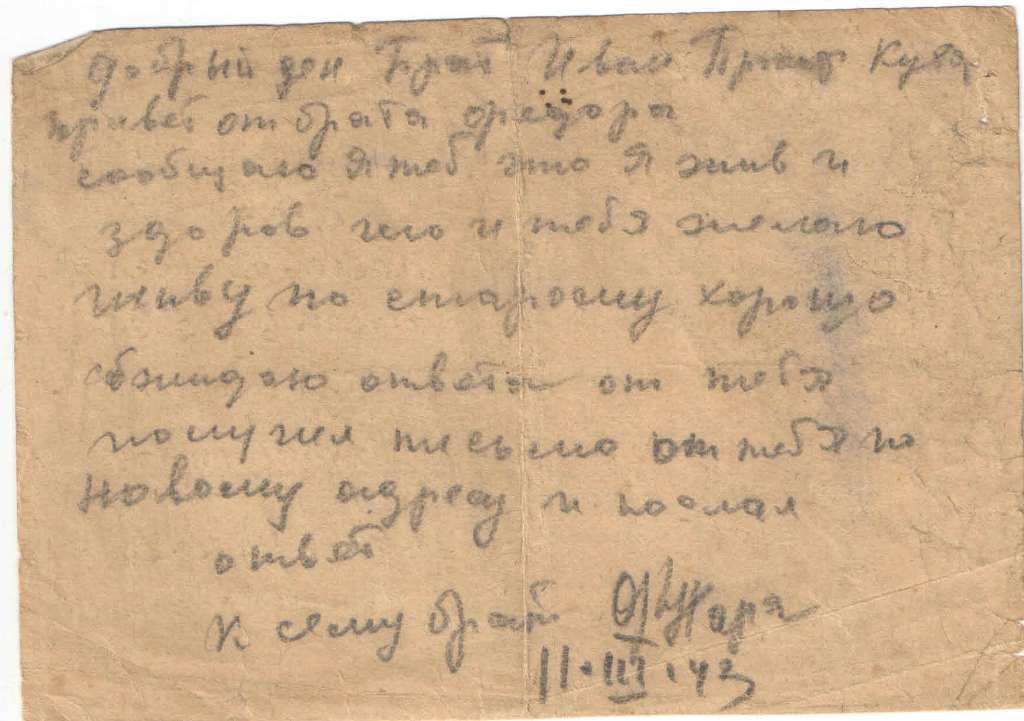 добрый ден Брат Иван
привет от брата федора
сообщаю я теб что я жив и
здоров чего и тебя желаю
живу по старому хорошо
обжидаю ответа от тебя
получил письмо от тебя по
новому адресу и послал
ответ
к сему брат
11.III.43